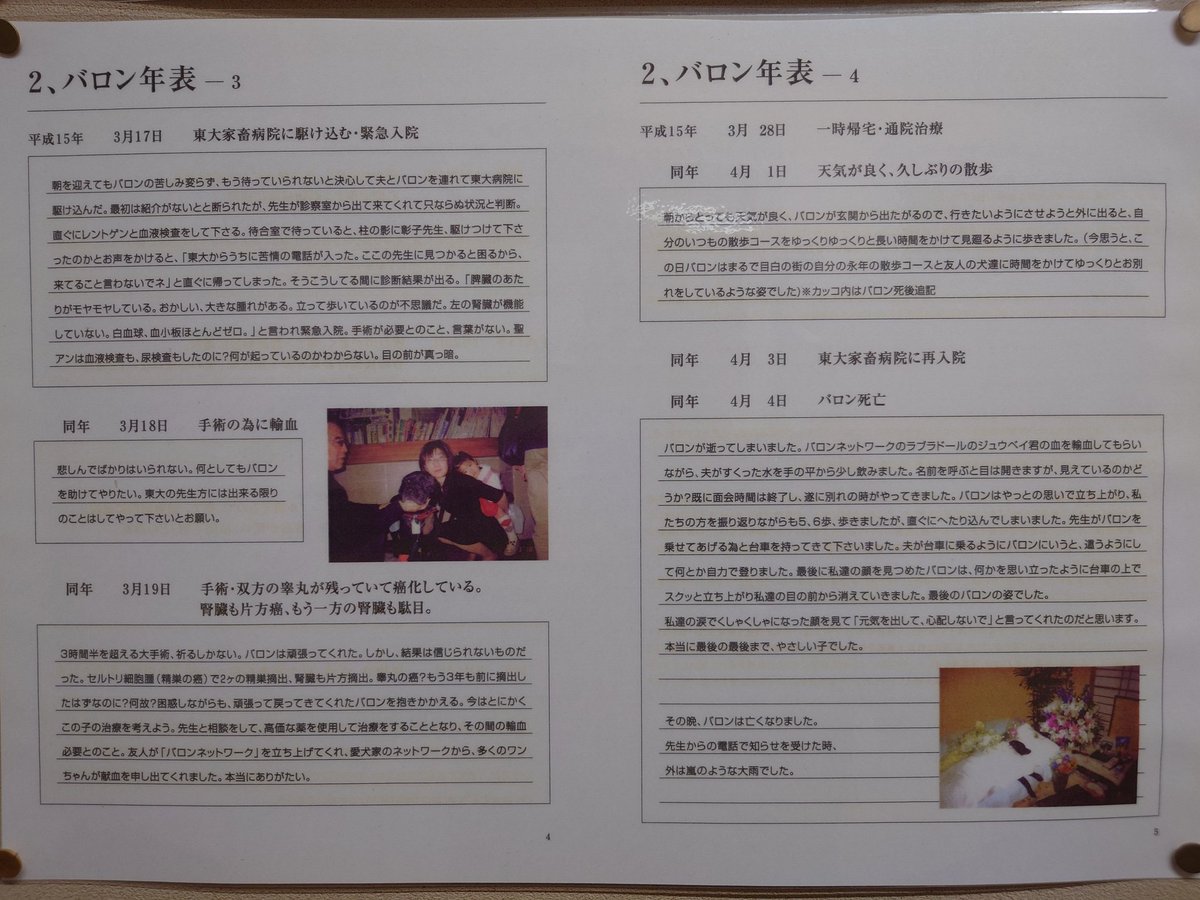 2、バロン年表 ― 3
平成15年 3月17日 東大家畜病院に駆け込む・緊急入院
朝を迎えてもバロンの苦しみ変らず、もう待っていられないと決心して夫とバロンを連れて東大病院に
駆け込んだ。最初は紹介がないとと断られたが、先生が診察室から出て来てくれて只ならぬ状況と判断。
直ぐにレントゲンと血液検査をして下さる。待合室で待っていると、柱の影に彰子先生、駆けつけて下さ
ったのかとお声をかけると、「東大からうちに苦情の電話が入った。ここの先生に見つかると困るから、
来てること言わないでネ」と直ぐに帰ってしまった。そうこうしてる間に診断結果が出る。「脾臓のあた
りがモヤモヤしている。おかしい、大きな腫れがある。立って歩いているのが不思議だ。左の腎臓が機能
していない。白血球、血小板ほとんどゼロ。」と言われ緊急入院。手術が必要とのこと、言葉がない。聖
アンは血液検査も、尿検査もしたのに?何が起っているのかわからない。目の前が真っ暗。
同年 3月18日 手術の為に輸血
悲しんでばかりはいられない。何としてもバロン
を助けてやりたい。東大の先生方には出来る限り
のことはしてやって下さいとお願い。
同年 3月19日 手術・双方の睾丸が残っていて癌化している。
腎臓も片方癌、もう一方の腎臓も駄目。
3時間半を超える大手術、祈るしかない。バロンは頑張ってくれた。しかし、結果は信じられないものだ
った。セルトリ細胞腫(精巣の癌)で2ヶの精巣摘出、腎臓も片方摘出。睾丸の癌?もう3年も前に摘出し
たはずなのに?何故?困惑しながらも、頑張って戻ってきてくれたバロンを抱きかかえる。今はとにかく
この子の治療を考えよう。先生と相談をして、高価な薬を使用して治療をすることとなり、その間の輸血
必要とのこと。友人が「バロンネットワーク」を立ち上げてくれ、愛犬家のネットワークから、多くのワン
ちゃんが献血を申し出てくれました。本当にありがたい。
4
2、バロン年表 ― 4
平成15年 3月 28日 一時帰宅・通院治療
同年 4月 1日 天気が良く、久しぶりの散歩
朝からとっても天気が良く、バロンが玄関から出たがるので、行きたいようにさせようと外に出ると、自
分のいつもの散歩コースをゆっくりゆっくりと長い時間をかけて見廻るように歩きました。(今思うと、こ
の日バロンはまるで目白の街の自分の永年の散歩コースと友人の犬達に時間をかけてゆっくりとお別
れをしているような姿でした)※カッコ内はバロン死後追記
同年 4月 3日 東大家畜病院に再入院
同年 4月 4日 バロン死亡
バロンが逝ってしまいました。バロンネットワークのラブラドールのジュウベイ君の血を輸血してもらい
ながら、夫がすくった水を手の平から少し飲みました。名前を呼ぶと目は開きますが、見えているのかど
うか?既に面会時間は終了し、遂に別れの時がやってきました。バロンはやっとの思いで立ち上がり、私
たちの方を振り返りながらも5、6歩、歩きましたが、直ぐにへたり込んでしまいました。先生がバロンを
乗せてあげる為と台車を持ってきて下さいました。夫が台車に乗るようにバロンにいうと、這うようにし
て何とか自力で登りました。最後に私達の顔を見つめたバロンは、何かを思い立ったように台車の上で
スクッと立ち上がり私達の目の前から消えていきました。最後のバロンの姿でした。
私達の涙でくしゃくしゃになった顔を見て「元気を出して、心配しないで」と言ってくれたのだと思います。
本当に最後の最後まで、やさしい子でした。
その晩、バロンは亡くなりました。
先生からの電話で知らせを受けた時、
外は嵐のような大雨でした。
5